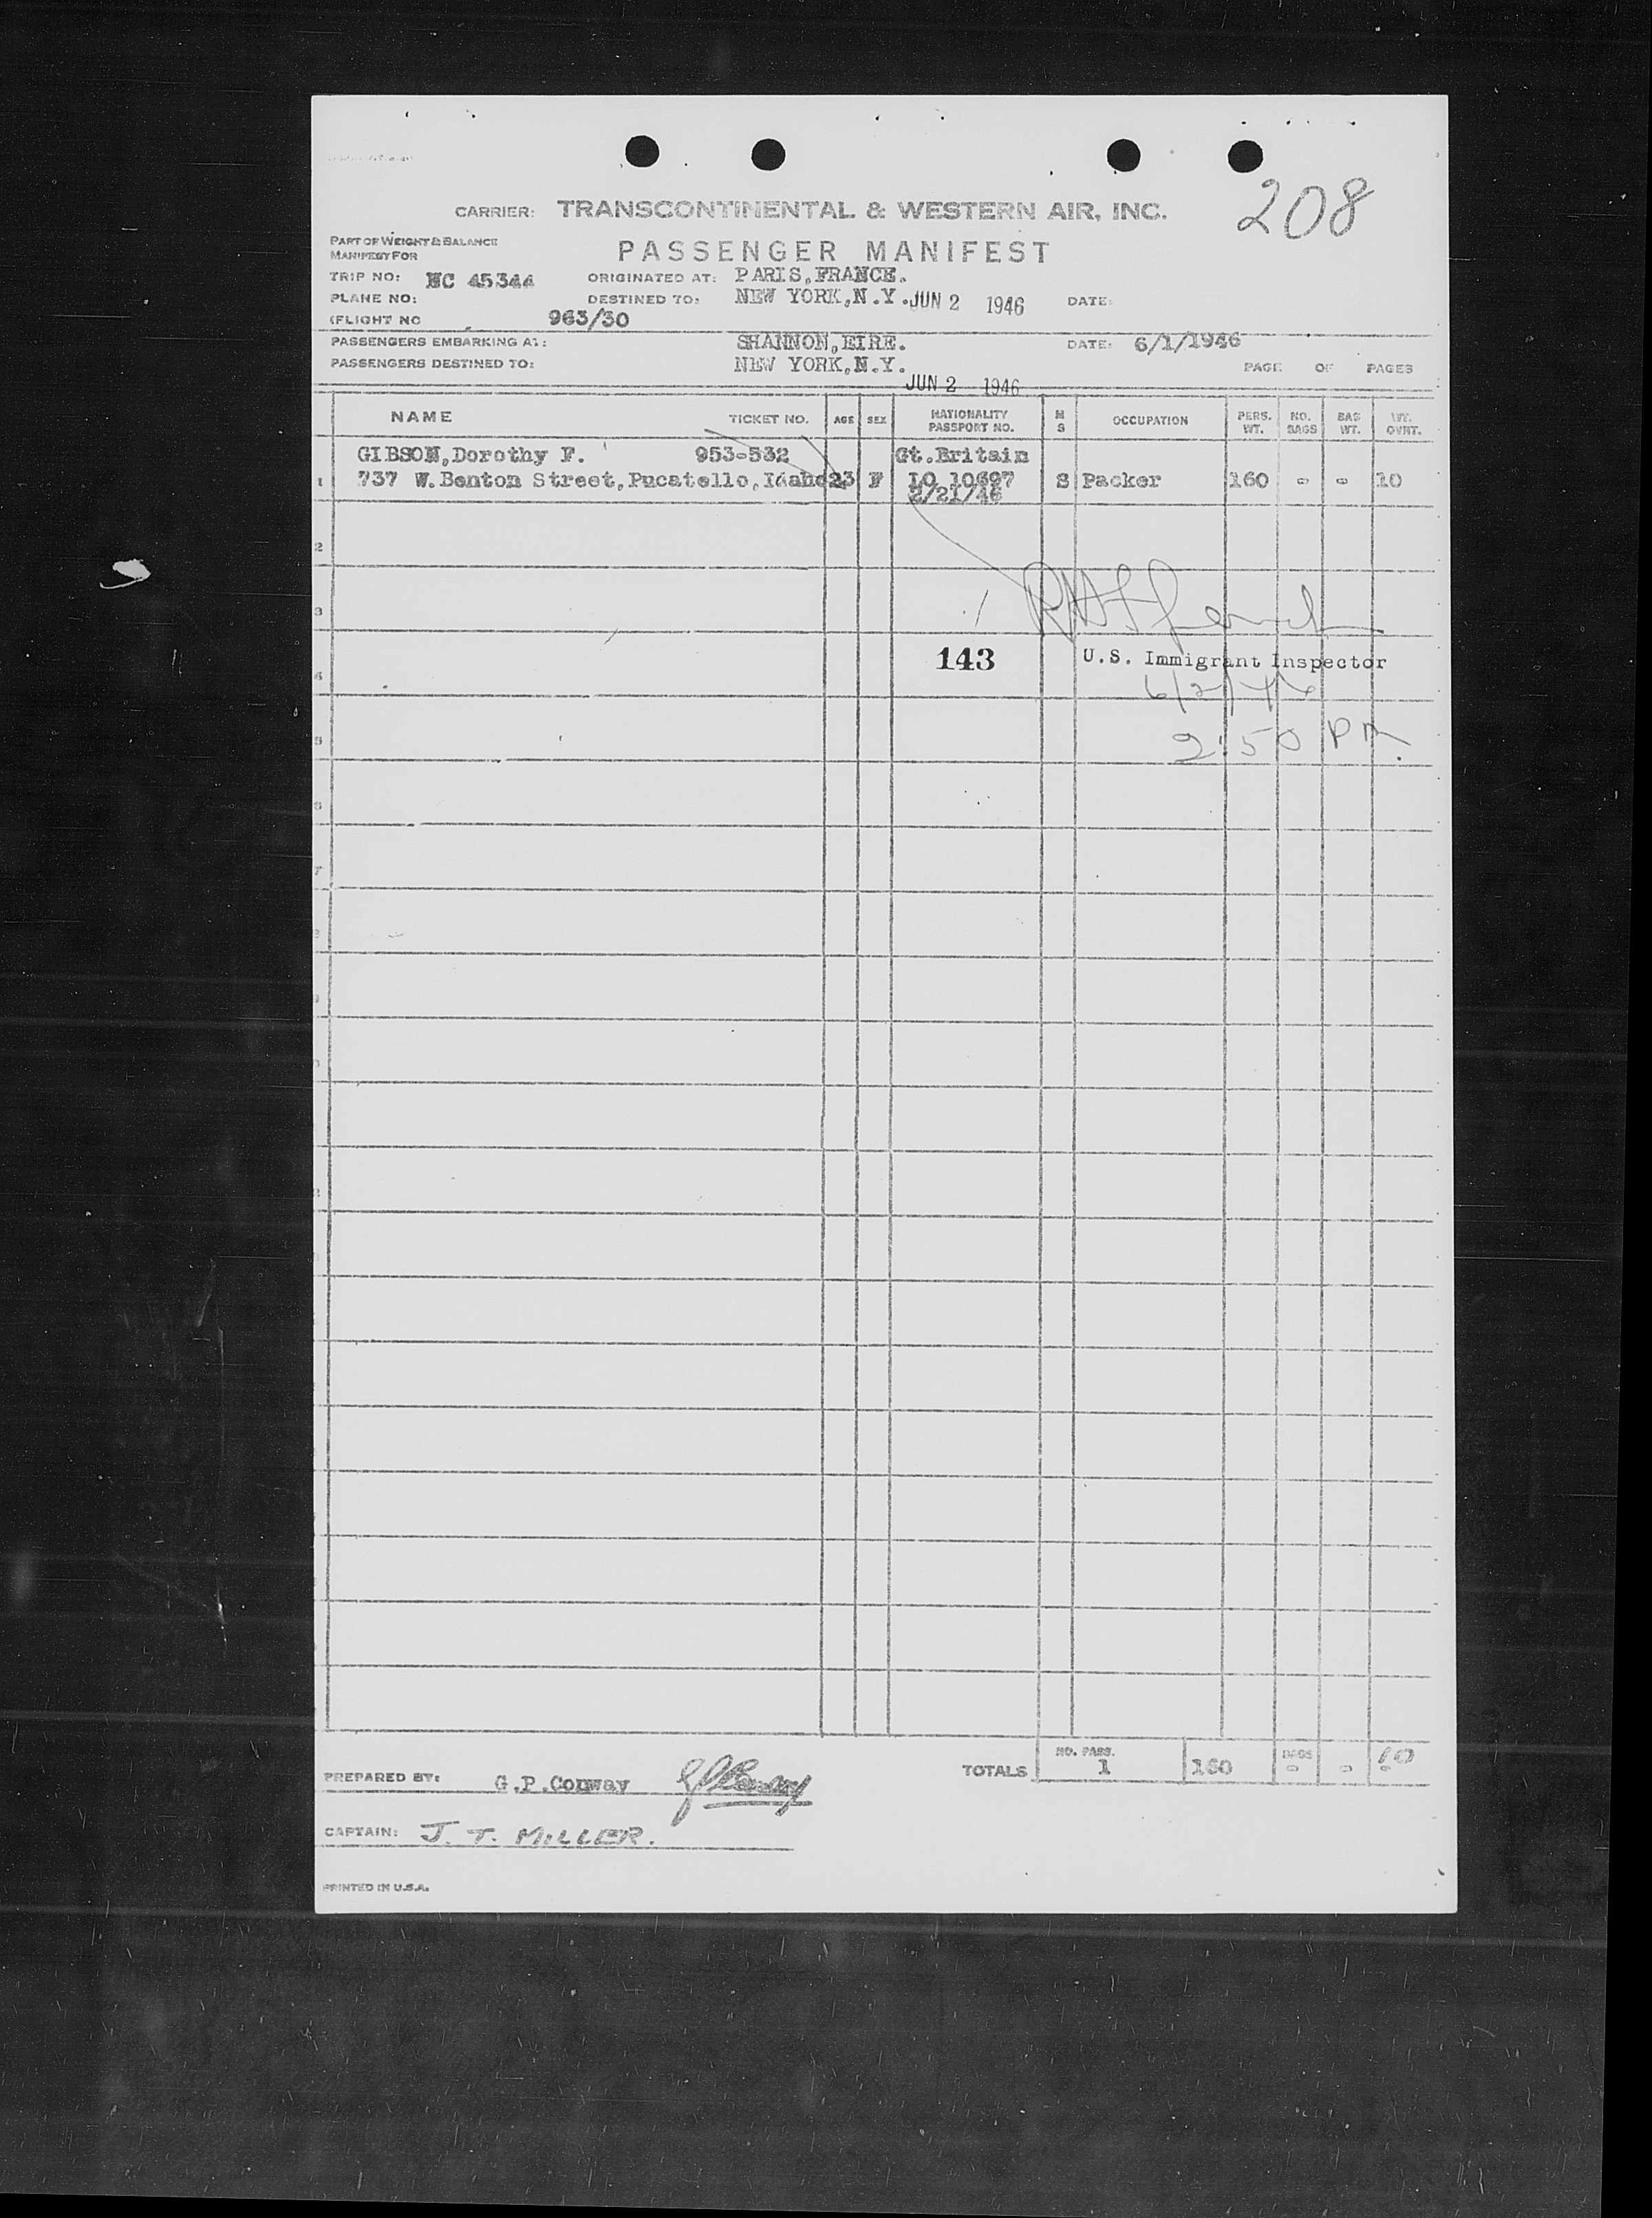 208
CARRIER: TRANSCONTINENTAL & WESTERN AIR, INC.
PART OF WEIGHT & BALANCE
MANIFEST FOR
PASSENGER MANIFEST
TRIP NO: NC 45344 ORIGINATED AT: PARIS,FRANCE.
PLANE NO: DESTINED TO: NEW YORK,N.Y. JUN 2 1946 DATE:
(FLIGHT NO 963/30
PASSENGERS EMBARKING AT: SHANNON,EIRE. DATE: 6/1/1946
PASSENGERS DESTINED TO: NEW YORK,N.Y. PAGE OF PAGES
JUN 2 1946
NAME TICKET NO. AGE SEX NATIONALITY PASSPORT NO. M S OCCUPATION PERS. WT. NO. BAGS BAG WT. WT. OVNT.
GIBSON,Dorothy F. 953-532 Gt.Britain
1 737 W.Benton Street,Pucatello,Idaho 23 F IO 10697 S Packer 160 - - 10
2/21/46
2
3
143 U.S. Immigrant Inspector
4
6/2/46
5 2:50 PM.
6
7
TOTALS NO. PASS. 1 160 BAGS - - 10
PREPARED BY: G.P.Conway
CAPTAIN: J. T. MILLER.
PRINTED IN U.S.A.